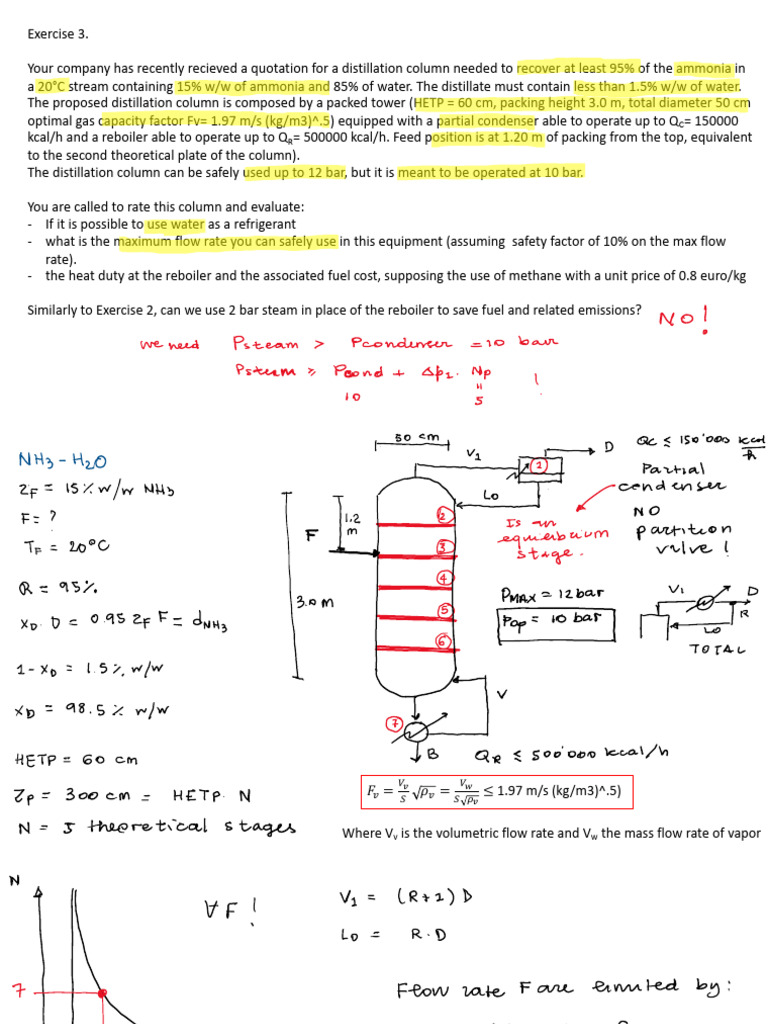 Exercise 3.
Your company has recently recieved a quotation for a distillation column needed to recover at least 95% of the ammonia in
a 20°C stream containing 15% w/w of ammonia and 85% of water. The distillate must contain less than 1.5% w/w of water.
The proposed distillation column is composed by a packed tower (HETP = 60 cm, packing height 3.0 m, total diameter 50 cm
optimal gas capacity factor Fv= 1.97 m/s (kg/m3)^.5) equipped with a partial condenser able to operate up to QC= 150000
kcal/h and a reboiler able to operate up to QR= 500000 kcal/h. Feed position is at 1.20 m of packing from the top, equivalent
to the second theoretical plate of the column).
The distillation column can be safely used up to 12 bar, but it is meant to be operated at 10 bar.
You are called to rate this column and evaluate:
- If it is possible to use water as a refrigerant
- what is the maximum flow rate you can safely use in this equipment (assuming safety factor of 10% on the max flow
rate).
- the heat duty at the reboiler and the associated fuel cost, supposing the use of methane with a unit price of 0.8 euro/kg
Similarly to Exercise 2, can we use 2 bar steam in place of the reboiler to save fuel and related emissions?
NO!
We need Psteam > Pcondenser = 10 bar
Psteam ≥ Pcond + Δp1. Np !
10 5
50 cm
V1
D
QC ≤ 150'000 kcal/h
NH3-H2O
ZF = 15% w/w NH3
F = ?
TF = 20°C
R = 95%
XD. D = 0.95 ZF F = dNH3
1-XD = 1.5% w/w
XD = 98.5% w/w
HETP = 60 cm
Zp = 300 cm = HETP. N
N = 5 theoretical stages
1
Partial
condenser
NO
partition
valve!
L0
Is an
equilibrium
stage.
1.2
m
F
3.0 m
2
3
4
5
6
7
PMAX = 12 bar
Pop = 10 bar
V1
D
R
L0
TOTAL
V
B
QR ≤ 500'000 kcal/h
Fv = Vv/S √ρv = Vw/S√ρv ≤ 1.97 m/s (kg/m3)^.5)
Where Vv is the volumetric flow rate and Vw the mass flow rate of vapor
N
7
∀F!
V1 = (R+1) D
L0 = R. D
Flow rate F are limited by: